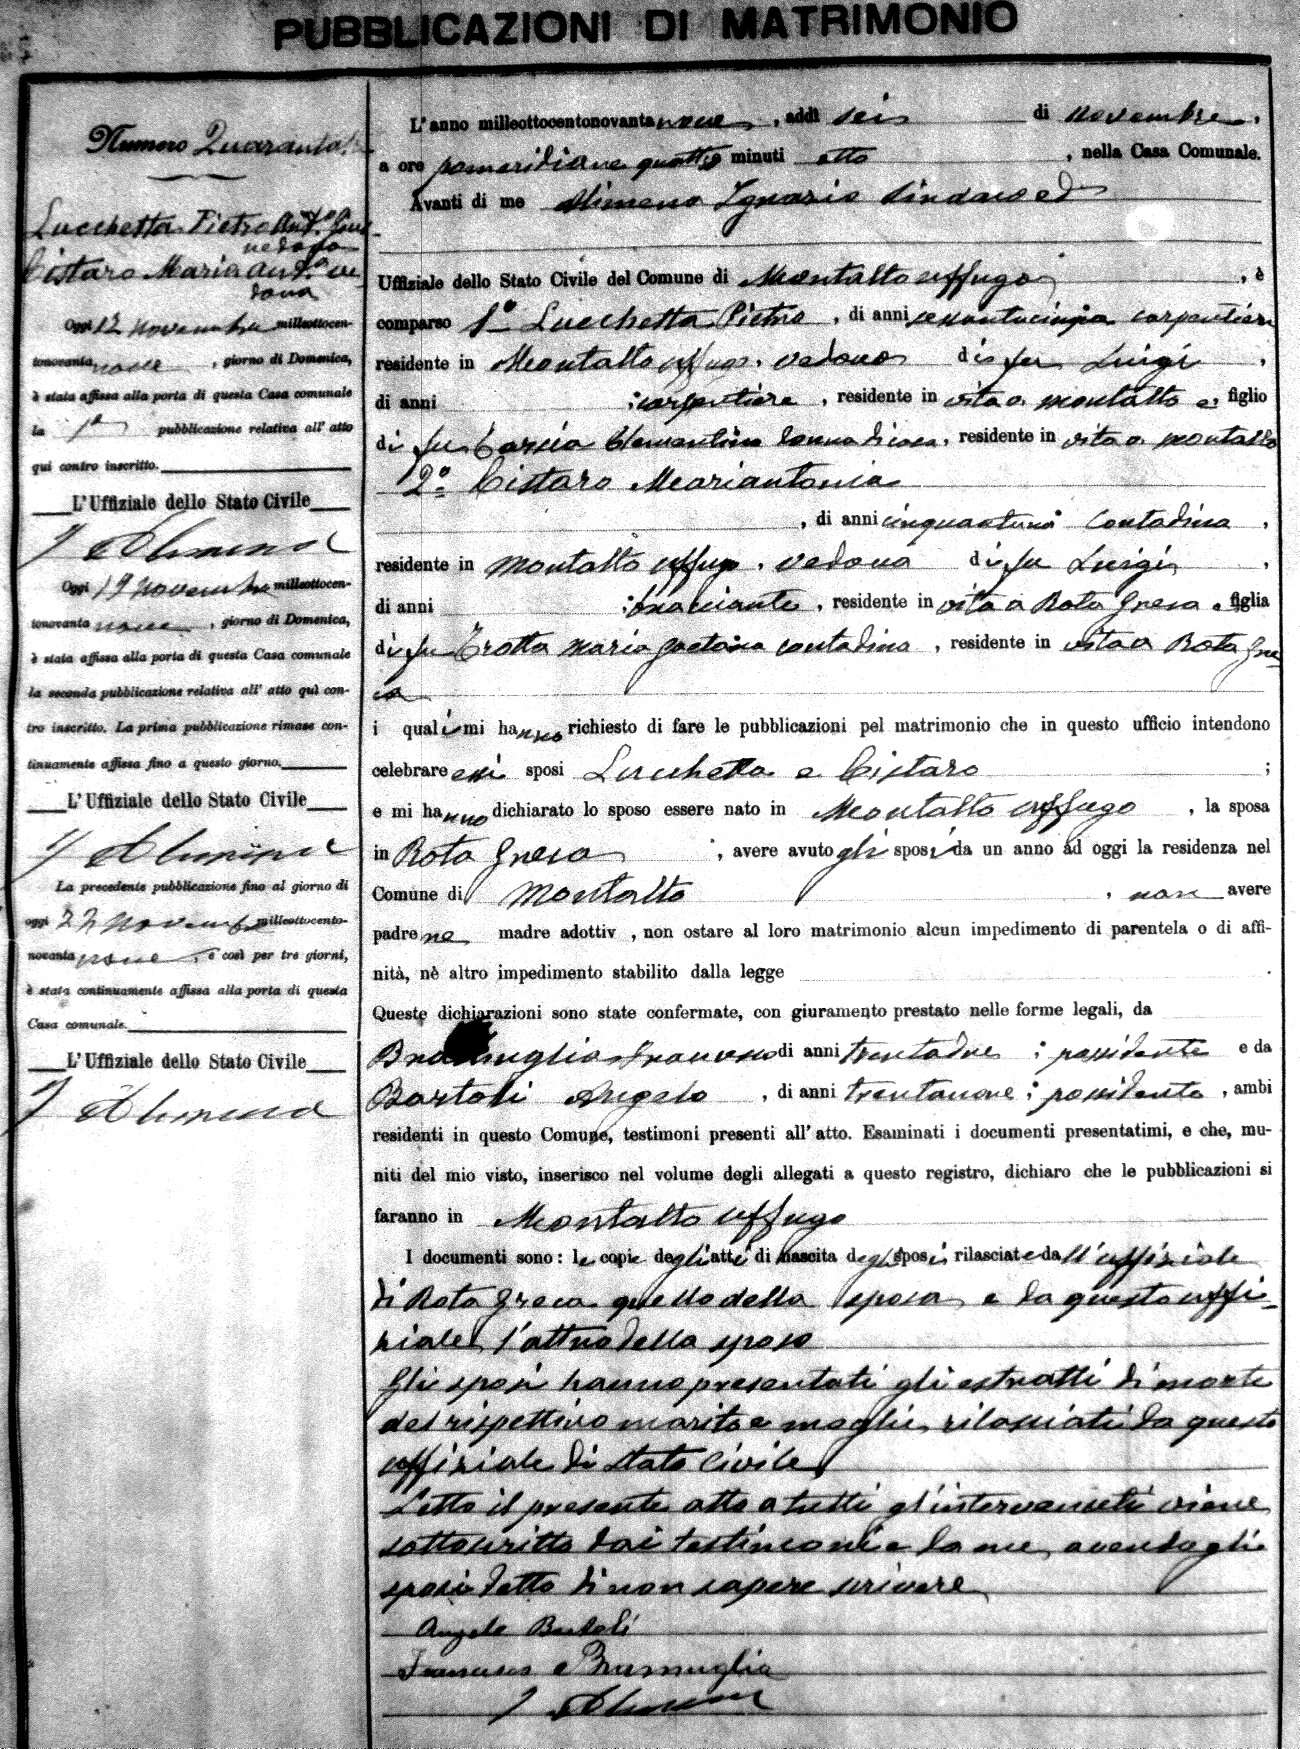 PUBBLICAZIONI DI MATRIMONIO
Numero Quaranta
Lucchetta Pietro
vedovo
Cistaro Maria Ant.a ve
dova
Oggi 12 novembre milleottocen-
tonovanta nove, giorno di Domenica,
è stata affissa alla porta di questa Casa comunale
la 1a pubblicazione relativa all' atto
qui contro inscritto.
L'Uffiziale dello Stato Civile
I Alimena
Oggi 19 novembre milleottocen-
tonovanta nove, giorno di Domenica,
è stata affissa alla porta di questa Casa comunale
la seconda pubblicazione relativa all' atto quì con-
tro inscritto. La prima pubblicazione rimase con-
tinuamente affissa fino a questo giorno.
L'Uffiziale dello Stato Civile
I Alimena
La precedente pubblicazione fino al giorno di
oggi 22 novembre milleottocento-
novanta nove, è così per tre giorni,
è stata continuamente affissa alla porta di questa
Casa comunale.
L'Uffiziale dello Stato Civile
I Alimena
L'anno milleottocentonovanta nove, addì seis di novembre,
a ore pomeridiane quattro minuti otto, nella Casa Comunale.
Avanti di me Alimena Ignazio Sindaco ed
Uffiziale dello Stato Civile del Comune di Montalto uffugo, è
comparso 1o Lucchetta Pietro, di anni sessantacinque carpentiere
residente in Montalto uffugo, vedovo di fu Luigi,
di anni ; carpentiere, residente in vita a montalto e, figlio
di fu Clementina donna di casa, residente in vita a montalto
2o Cistaro Mariantonia
, di anni cinquantuno contadina,
residente in montalto uffugo, vedova di fu Luigi,
di anni ; bracciante, residente in vita a Rota Greca e, figlia
di fu Trotta Maria Gaetana contadina, residente in vita a Rota Gre
ca
i quali mi hanno richiesto di fare le pubblicazioni pel matrimonio che in questo ufficio intendono
celebrare essi sposi Lucchetta e Cistaro ;
e mi hanno dichiarato lo sposo essere nato in Montalto uffugo, la sposa
in Rota Greca, avere avuto gli sposi da un anno ad oggi la residenza nel
Comune di Montalto, non avere
padre ne madre adottiv , non ostare al loro matrimonio alcun impedimento di parentela o di affi-
nità, nè altro impedimento stabilito dalla legge
Queste dichiarazioni sono state confermate, con giuramento prestato nelle forme legali, da
Francesco di anni trentadue ; possidente e da
Bartoli Angelo, di anni trentanove ; possidente, ambi
residenti in questo Comune, testimoni presenti all'atto. Esaminati i documenti presentatimi, e che, mu-
niti del mio visto, inserisco nel volume degli allegati a questo registro, dichiaro che le pubblicazioni si
faranno in Montalto uffugo
I documenti sono: le copie degli atti di nascita degli sposi rilasciate da l'uffiziale
di Rota Greca quello della sposa e da questo uffi-
ziale l'altro della sposo
Gli sposi hanno presentati gli estratti di morte
del rispettivo marito e moglie, rilasciati da questo
uffiziale di stato civile
Letto il presente atto a tutti gl'intervenuti viene
sottoscritto dai testimoni e da me, avendo gli
sposi detto di non sapere scrivere
Angelo Bartoli
Francesco
I Alimena